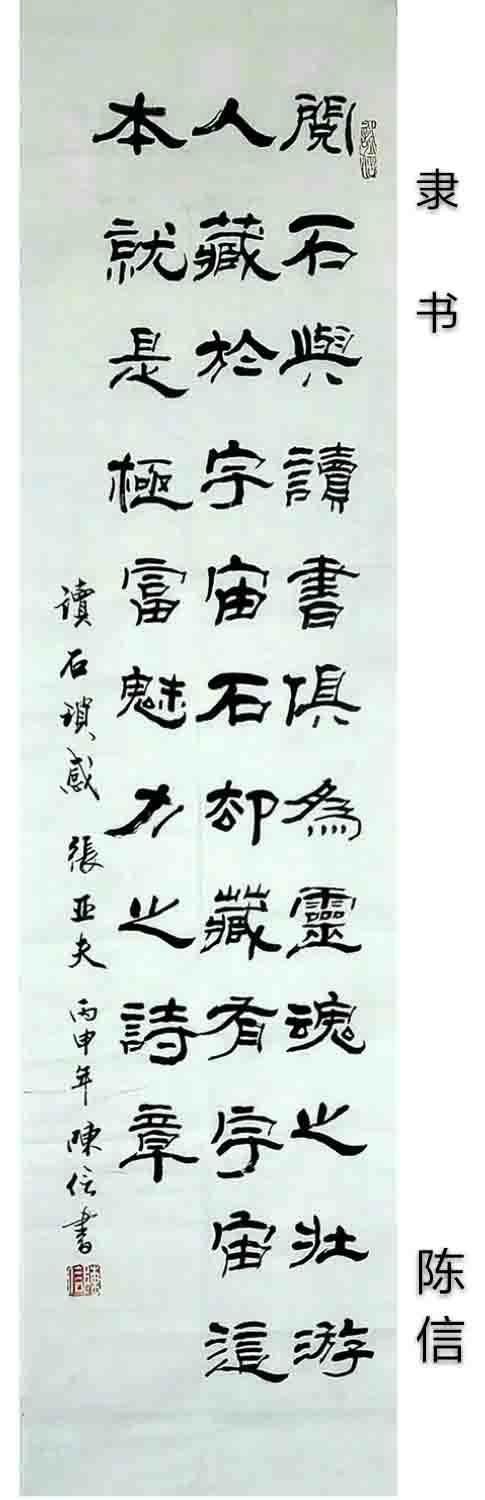 閱石與讀書俱為靈魂之壯游
人藏於宇宙石却藏有宇宙這
本就是極富魅力之詩章
讀石瑣感 張亞夫 丙申年 陳信書
隶书
陈信